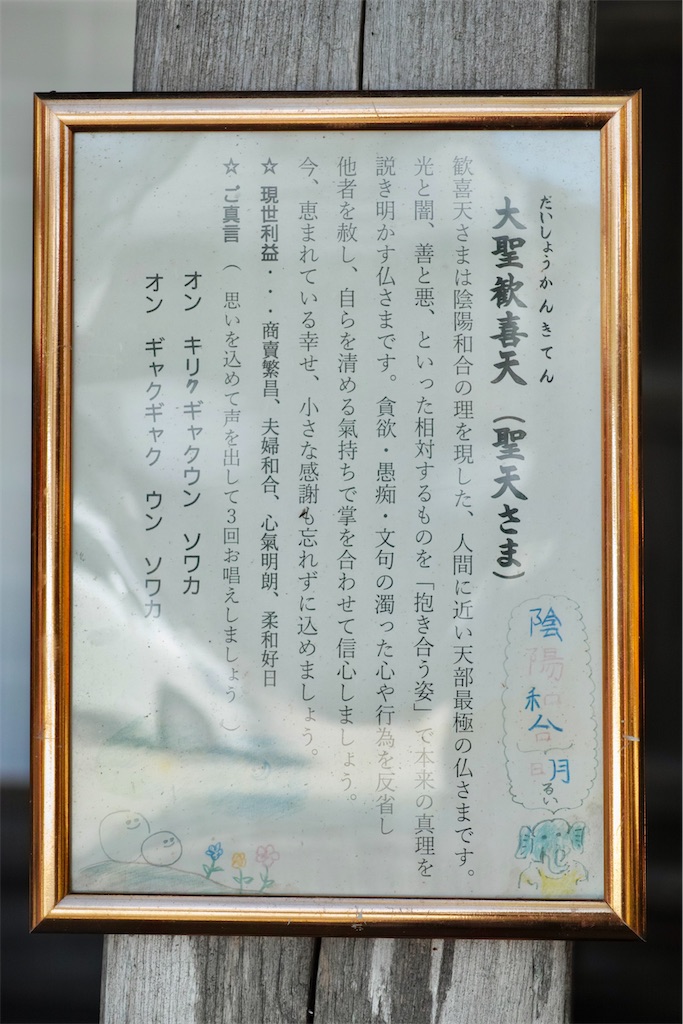 だいしょうかんきてん
大聖歓喜天(聖天さま)
歓喜天さまは陰陽和合の理を現した、人間に近い天部最極の仏さまです。
光と闇、善と悪、といった相対するものを「抱き合う姿」で本来の真理を
説き明かす仏さまです。貪欲・愚痴・文句の濁った心や行為を反省し
他者を赦し、自らを清める氣持ちで掌を合わせて信心しましょう。
今、恵まれている幸せ、小さな感謝も忘れずに込めましょう。
☆ 現世利益・・・商賣繁昌、夫婦和合、心氣明朗、柔和好日
☆ ご真言 ( 思いを込めて声を出して3回お唱えしましょう )
オン キリク ギャクウン ソワカ
オン ギャクギャク ウン ソワカ
陰陽和合